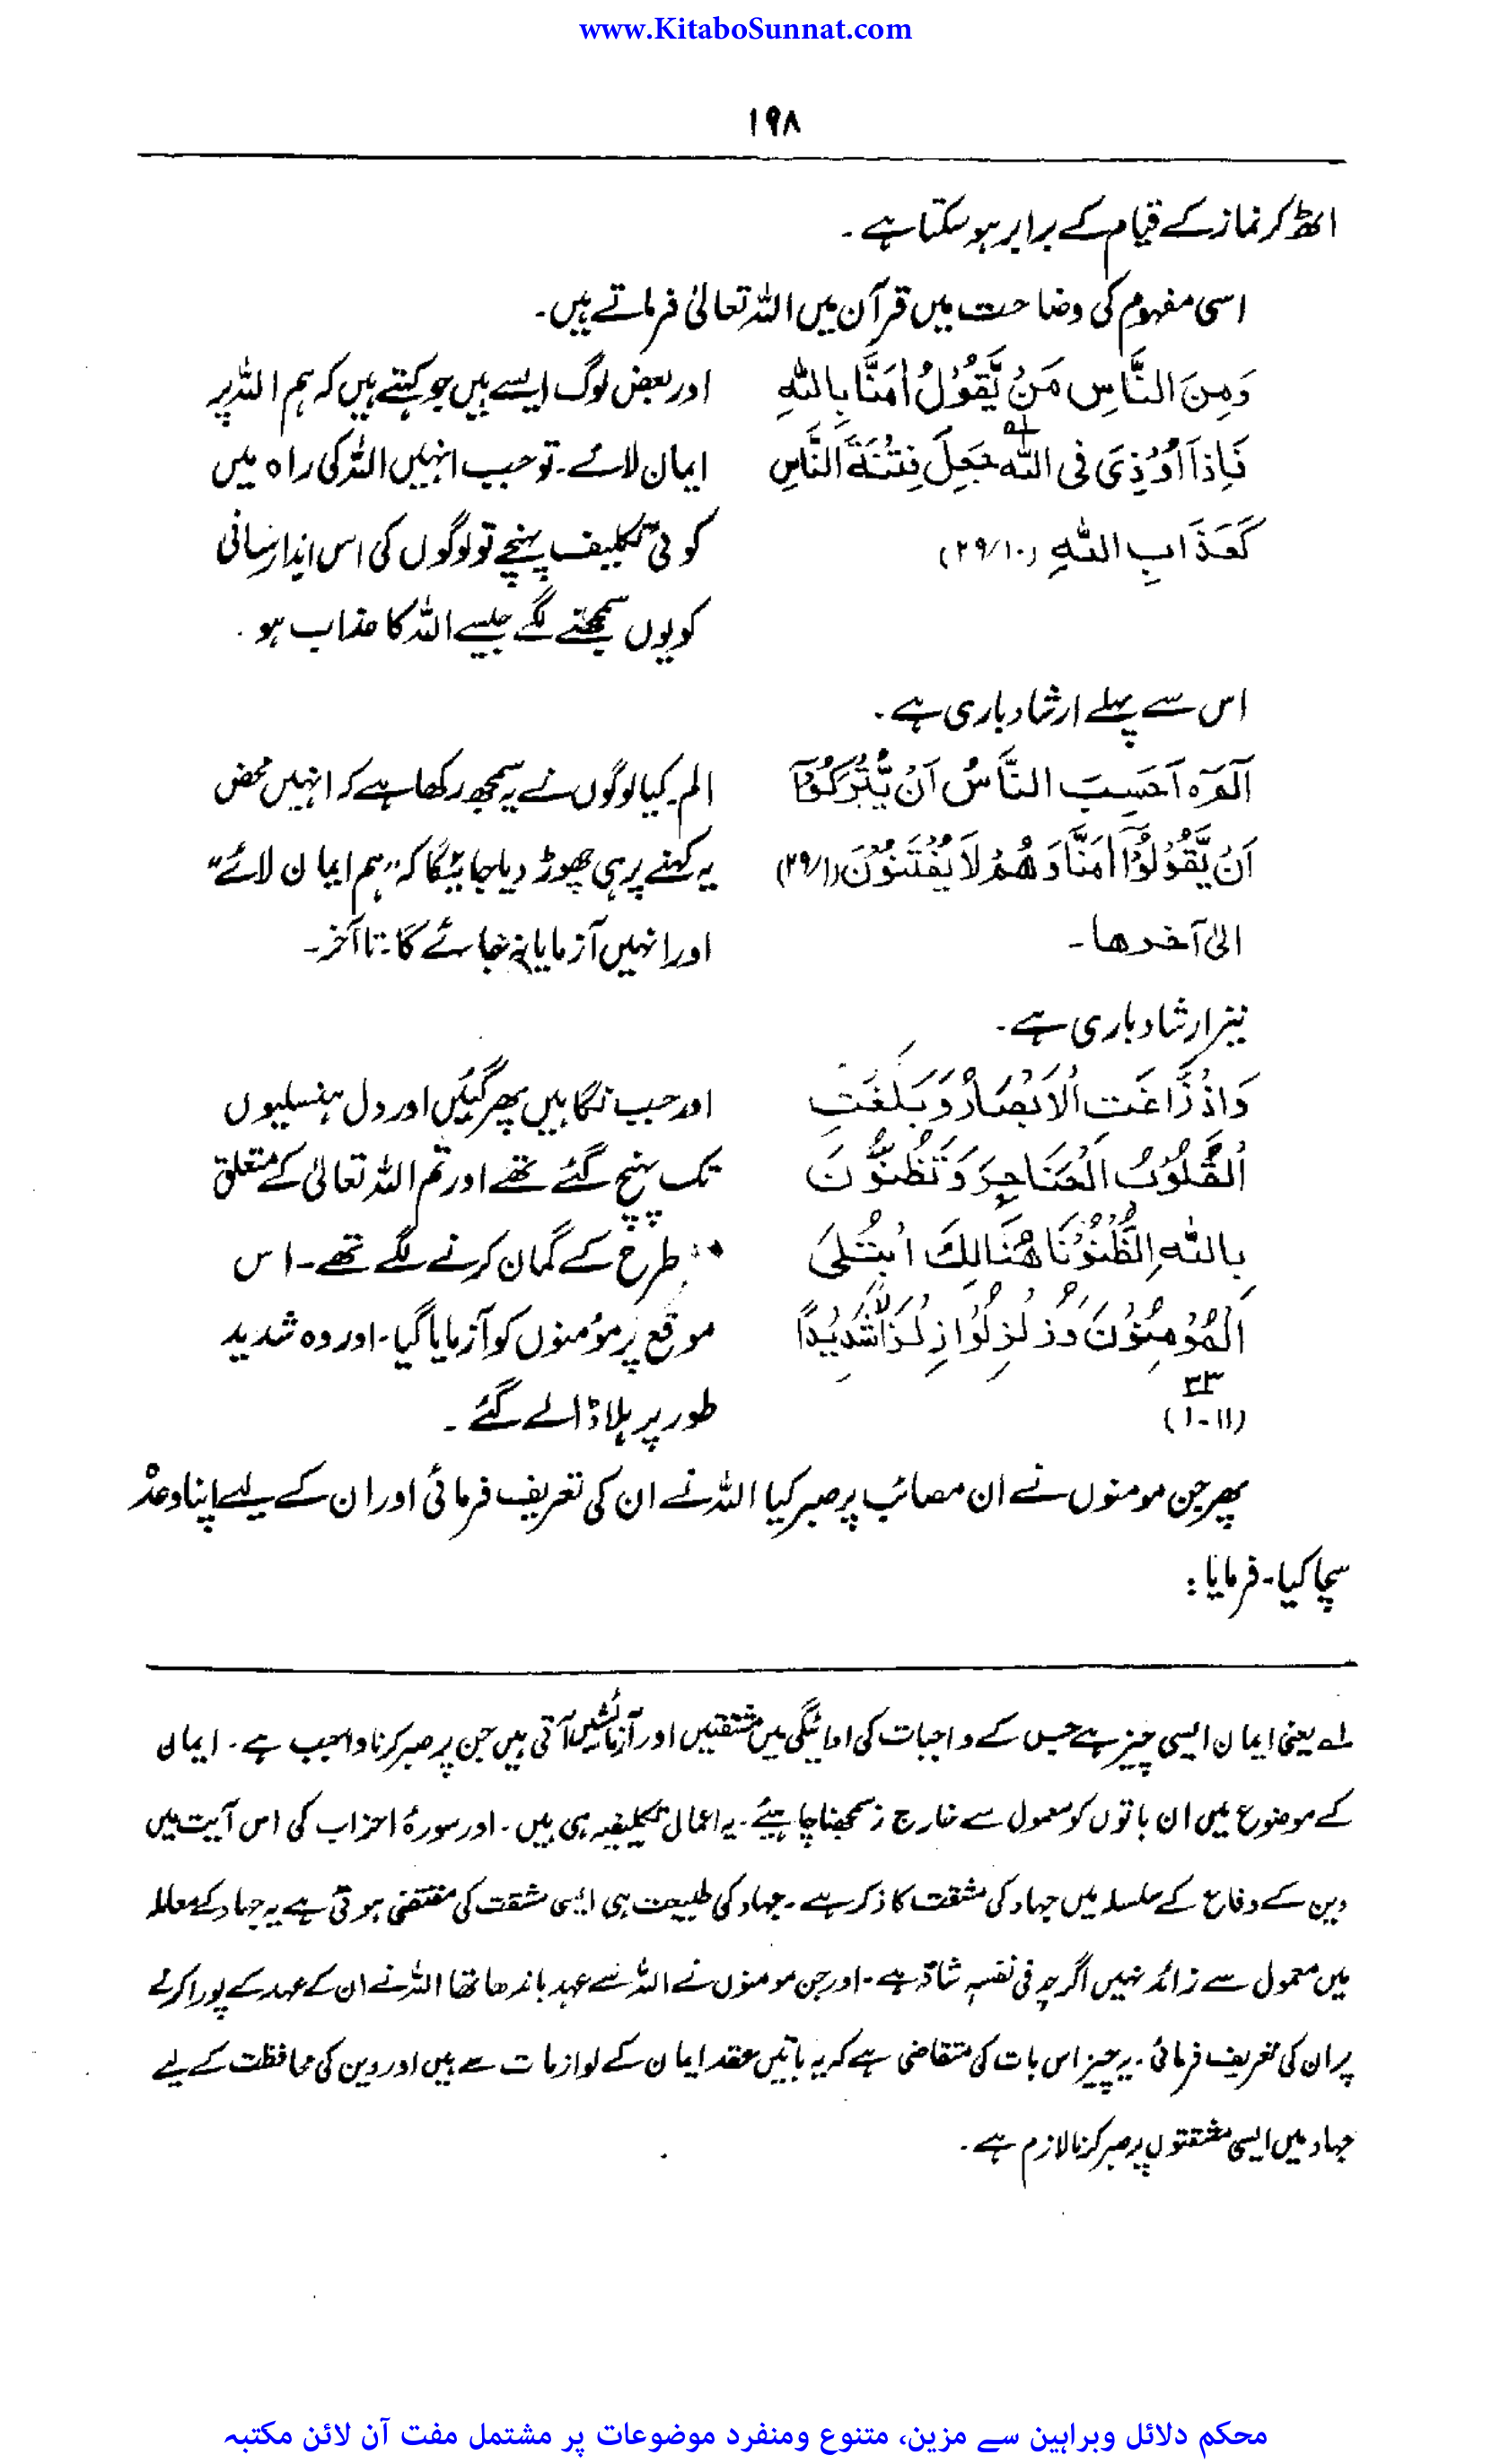 www.KitaboSunnat.com
۱۹۸
اکھڑ کر نماز کے قیام کے برابر ہو سکتا ہے ۔
اسی مفہوم کی وضاحت میں قرآن میں اللہ تعالیٰ فرماتے ہیں۔
وَمِنَ النَّاسِ مَنْ يَّقُوْلُ اٰمَنَّا بِاللّٰهِ
فَاِذَآ اُوْذِیَ فِی اللّٰهِ جَعَلَ فِتْنَةَ النَّاسِ
كَعَذَابِ اللّٰهِ (۲۹/۱۰)
اور بعض لوگ ایسے ہیں جو کہتے ہیں کہ ہم اللہ پر
ایمان لائے ۔ تو جب انہیں اللہ کی راہ میں
کوئی تکلیف پہنچے تو لوگوں کی اس ایذا رسانی
کو یوں سمجھنے لگے جیسے اللہ کا عذاب ہو ۔
اس سے پہلے ارشاد باری ہے ۔
آلٓمّٓ ہ اَحَسِبَ النَّاسُ اَنْ يُّتْرَكُوْٓا
اَنْ يَّقُوْلُوْٓا اٰمَنَّا وَهُمْ لَا يُفْتَنُوْنَ (۲۹/۱)
الیٰ آخرھا ۔
الم ۔ کیا لوگوں نے یہ سمجھ رکھا ہے کہ انہیں محض
یہ کہنے پر ہی چھوڑ دیا جائیگا کہ ”ہم ایمان لائے“
اور انہیں آزمایا نہ جائے گا۔ تا آخر ۔
نیز ارشاد باری ہے ۔
وَاِذْ زَّاغَتِ الْاَبْصَارُ وَبَلَغَتِ
الْقُلُوْبُ الْحَنَاجِرَ وَتَظُنُّوْنَ
بِاللّٰهِ الظُّنُوْنَا هُنَالِكَ ابْتُلِیَ
الْمُؤْمِنُوْنَ وَزُلْزِلُوْا زِلْزَالًا شَدِيْدًا
۳۳
(۱۱-۱۰)
اور جب نگاہیں پھر گئیں اور دل ہنسلیوں
تک پہنچ گئے تھے اور تم اللہ تعالیٰ کے متعلق
طرح کے گمان کرنے لگے تھے ۔ اس
موقع پر مؤمنوں کو آزمایا گیا ۔ اور وہ شدید
طور پر ہلا ڈالے گئے ۔
پھر جن مومنوں نے ان مصائب پر صبر کیا اللہ نے ان کی تعریف فرمائی اور ان کے لیے اپنا وعدہ
سچا کیا ۔ فرمایا :
لہ یعنی ایمان ایسی چیز ہے جس کے واجبات کی ادائیگی میں مشقتیں اور آزمائشیں آتی ہیں جن پر صبر کرنا واجب ہے ۔ ایمان
کے موضوع میں ان باتوں کو معمول سے خارج نہ سمجھنا چاہیئے ۔ یہ اعمال تکلیفیہ ہی ہیں ۔ اور سورۂ احزاب کی اس آیت میں
دین کے دفاع کے سلسلہ میں جہاد کی مشقت کا ذکر ہے ۔ جہاد کی طبیعت ہی ایسی مشقت کی مقتضی ہوتی ہے یہ جہاد کے معاملہ
میں معمول سے زائد نہیں اگرچہ فی نفسہٖ شاذ ہے ۔ اور جن مومنوں نے اللہ سے عہد باندھا تھا اللہ نے ان کے عہد کے پورا کرنے
پر ان کی تعریف فرمائی ۔ یہ چیز اس بات کی متقاضی ہے کہ یہ باتیں عقد ایمان کے لوازمات سے ہیں اور دین کی محافظت کے لیے
جہاد میں ایسی مشقتوں پر صبر کرنا لازم ہے ۔
محکم دلائل وبراہین سے مزین، متنوع ومنفرد موضوعات پر مشتمل مفت آن لائن مکتبہ